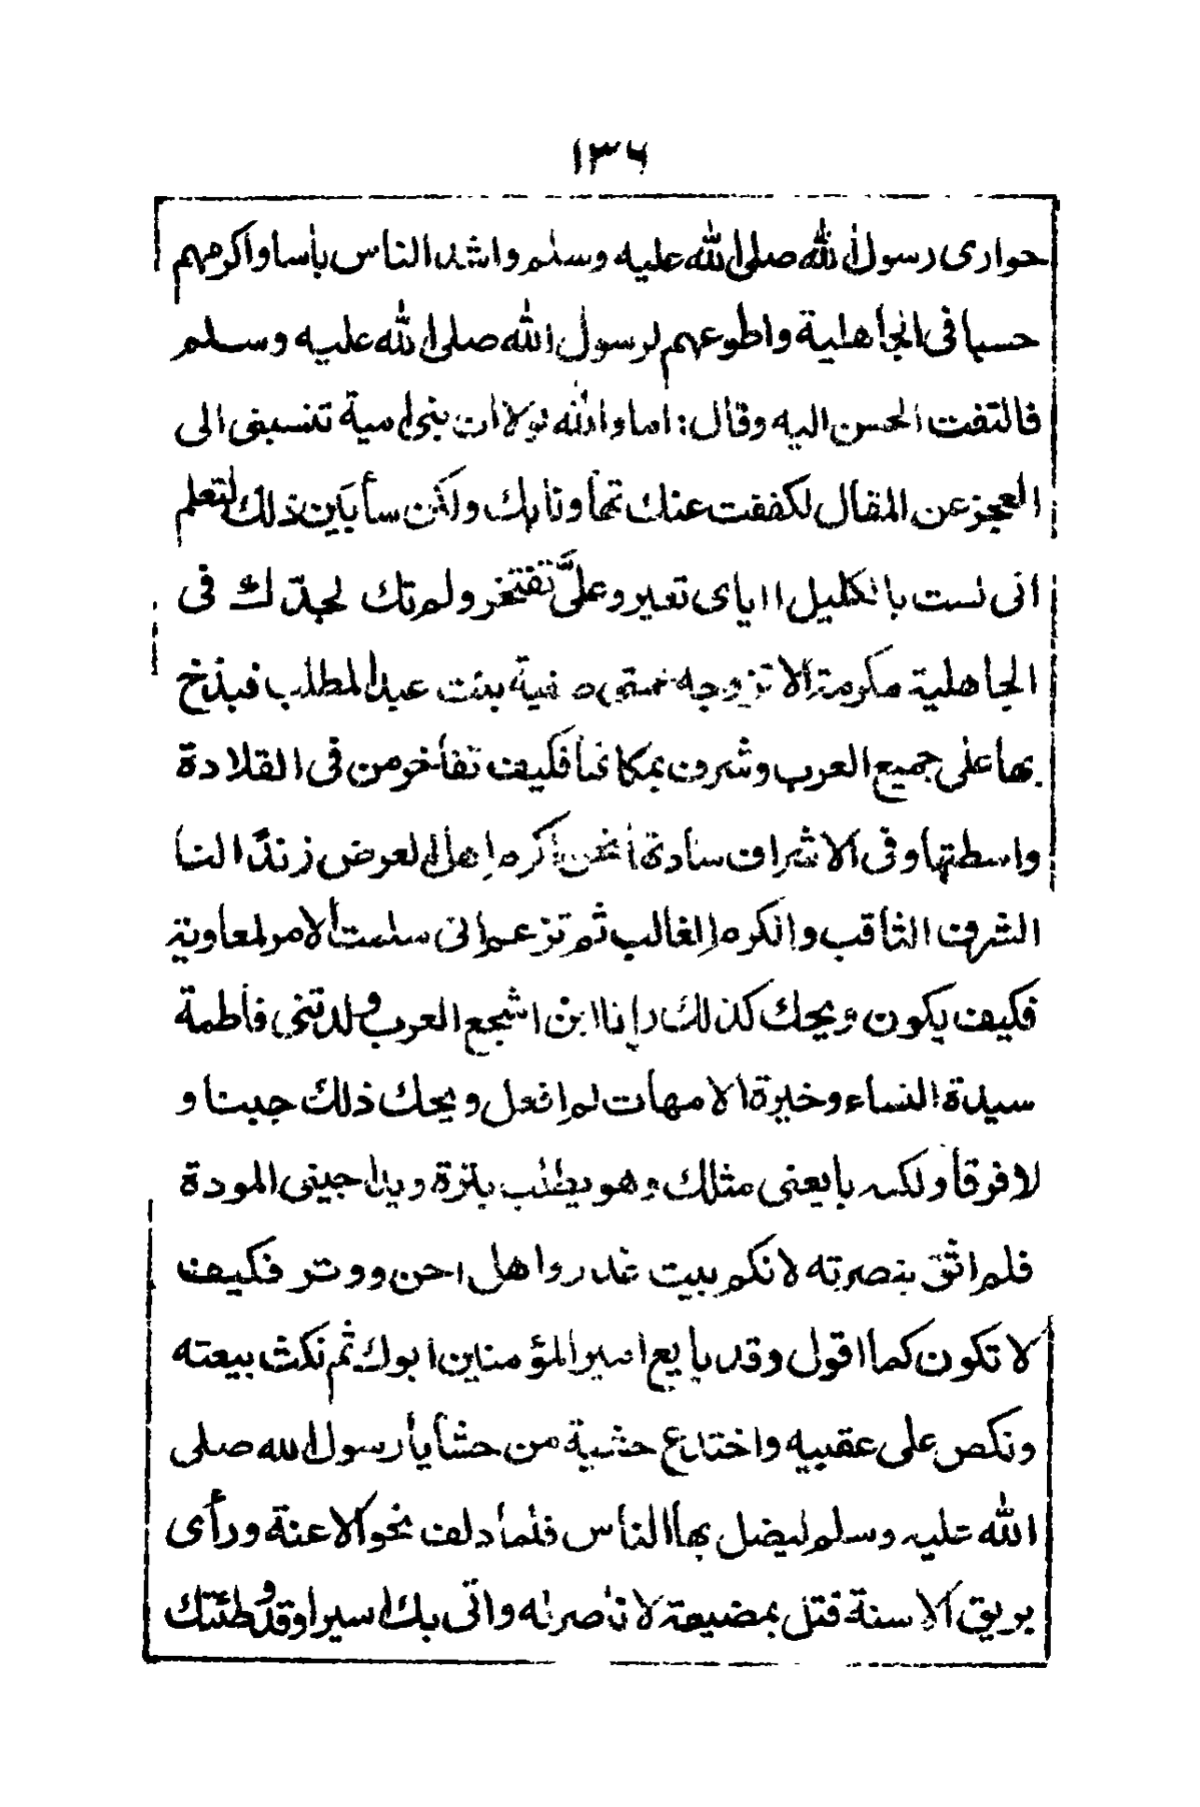 ١٣٦
حوارى رسول الله صلى الله عليه وسلم واشد الناس بأسا واكرمهم
حسبا فى الجاهلية واطوعهم لرسول الله صلى الله عليه وسلم
فالتفت الحسن اليه وقال: اما والله لولا ان بنى امية تنسبنى الى
العجز عن المقال لكففت عنك تهاونا بك ولكن سأبين ذلك لتعلم
انى لست بالكليل ااياى تعير وعلىّ تفتخر ولم تك لجدّك فى
الجاهلية مكرمة الا تزوجه عمتى صفية بنت عبد المطلب فبذخ
بها على جميع العرب وشرف بمكانها فكيف تفاخر من فى القلادة
واسطتها وفى الاشراف سادة انحن اكرم اهل العرض زندًا لنا
الشرف الثاقب والكرم الغالب ثم تزعم انى سلمت الامر لمعاوية
فكيف يكون ويحك كذلك وانا ابن اشجع العرب ولدتنى فاطمة
سيدة النساء وخيرة الامهات لم افعل ويحك ذلك جبنا و
لا فرقا ولكنه بايعنى مثلك وهو يطلب بترة ويداجينى المودة
فلم اثق بنصرته لانكم بيت غدر واهل احن ووتر فكيف
لا تكون كما اقول وقد بايع امير المؤمنين ابوك ثم نكث بيعته
ونكص على عقبيه واختدع حشية من حشايا رسول الله صلى
الله عليه وسلم ليضل بها الناس فلما دلف نحو الاعنة ورأى
بريق الاسنة قتل بمضيعة لا ناصر له واتى بك اسيرا وقد وطئتك